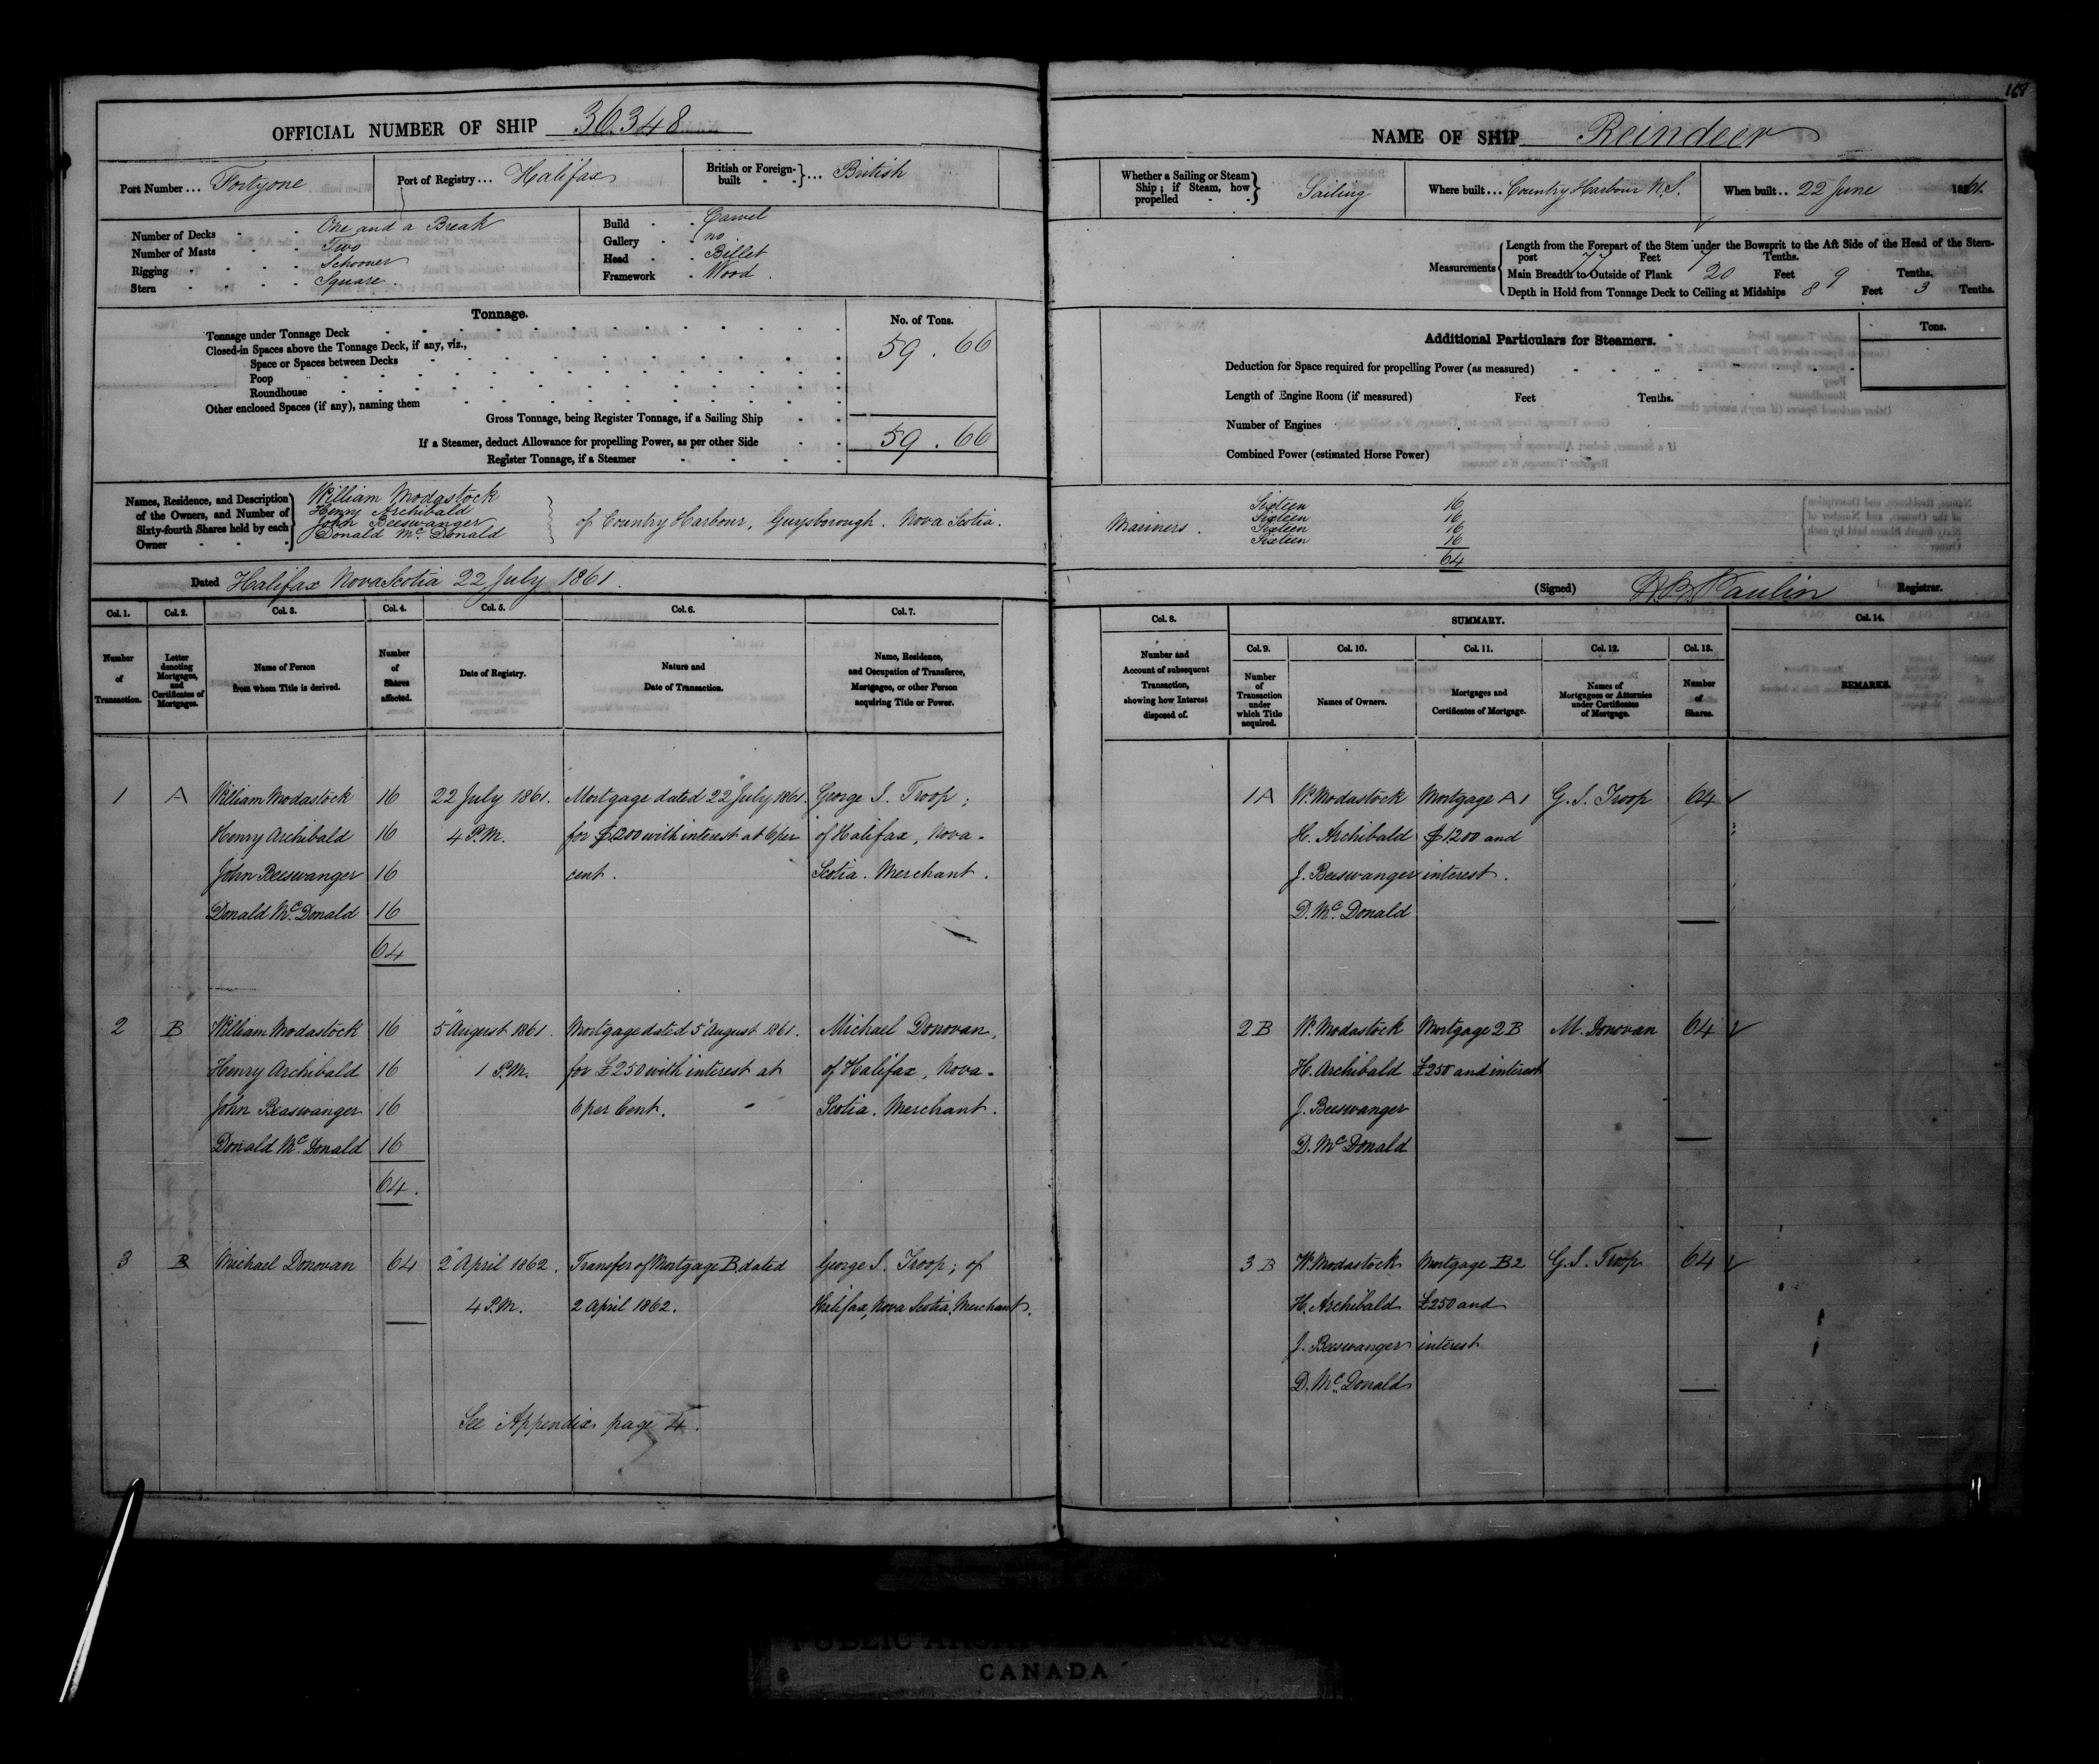 168
OFFICIAL NUMBER OF SHIP 36.348
Port Number ... Fortyone
Port of Registry ... Halifax
British or Foreign-built } ... British
Number of Decks - - One and a Break
Number of Masts - - Two
Rigging - - - - Schooner
Stern - - - - Square.
Build - - Carvel
Gallery - - no
Head - - Billet
Framework - Wood.
Tonnage.
No. of Tons.
Tonnage under Tonnage Deck 59.66
Closed-in Spaces above the Tonnage Deck, if any, viz.,
Space or Spaces between Decks
Poop
Roundhouse
Other enclosed Spaces (if any), naming them
Gross Tonnage, being Register Tonnage, if a Sailing Ship
If a Steamer, deduct Allowance for propelling Power, as per other Side 59.66
Register Tonnage, if a Steamer
Names, Residence, and Description of the Owners, and Number of Sixty-fourth Shares held by each Owner
William Modastock
Henry Archibald
John Beeswanger
Donald Mc Donald
of Country Harbour, Guysborough. Nova Scotia.
Dated Halifax Nova Scotia 22 July 1861.
Col. 1. Col. 2. Col. 3. Col. 4. Col. 5. Col. 6. Col. 7.
Number of Transaction.
Letter denoting Mortgages, and Certificates of Mortgages.
Name of Person from whom Title is derived.
Number of Shares affected.
Date of Registry.
Nature and Date of Transaction.
Name, Residence, and Occupation of Transferee, Mortgagee, or other Person acquiring Title or Power.
1 A William Modastock 16 22 July 1861. Mortgage dated 22" July 1861. George S. Troop;
Henry Archibald 16 4 P.M. for $1200 with interest at 6 per of Halifax, Nova-
John Beeswanger 16 cent. Scotia. Merchant.
Donald Mc. Donald 16
64
2 B William Modastock 16 5" August 1861. Mortgage dated 5" August 1861. Michael Donovan,
Henry Archibald 16 1 P.M. for £250 with interest at of Halifax, Nova-
John Beaswanger 16 6 per Cent. Scotia. Merchant.
Donald Mc. Donald 16
64.
3 B Michael Donovan 64 2" April 1862. Transfer of Mortgage B. dated George S. Troop; of
4 P.M. 2 April 1862. Halifax, Nova Scotia, Merchant.
See Appendix page 4.
NAME OF SHIP Reindeer
Whether a Sailing or Steam Ship; if Steam, how propelled } Sailing
Where built ... Country Harbour N.S.
When built .. 22 June 1861.
Measurements
Length from the Forepart of the Stem under the Bowsprit to the Aft Side of the Head of the Stern-
post 77 Feet 7 Tenths.
Main Breadth to Outside of Plank 20 Feet 9 Tenths.
Depth in Hold from Tonnage Deck to Ceiling at Midships 8 Feet 3 Tenths.
Additional Particulars for Steamers.
Tons.
Deduction for Space required for propelling Power (as measured)
Length of Engine Room (if measured) Feet Tenths.
Number of Engines
Combined Power (estimated Horse Power)
Mariners.
Sixteen 16
Sixteen 16
Sixteen 16
Sixteen 16
64
(Signed) Paulin Registrar.
Col. 8. SUMMARY. Col. 14.
Col. 9. Col. 10. Col. 11. Col. 12. Col. 13.
Number and Account of subsequent Transaction, showing how Interest disposed of.
Number of Transaction under which Title acquired.
Names of Owners.
Mortgages and Certificates of Mortgage.
Names of Mortgagees or Attornies under Certificates of Mortgage.
Number of Shares.
REMARKS.
1 A W. Modastock Mortgage A 1 G. S. Troop 64
H. Archibald $1200 and
J. Beeswanger interest.
D. Mc. Donald
2 B W. Modastock Mortgage 2 B M. Donovan 64
H. Archibald £250 and interest
J. Beeswanger
D. Mc Donald
3 B W. Modastock Mortgage B 2 G. S. Troop 64
H. Archibald £250 and
J. Beeswanger interest
D. Mc. Donald
CANADA